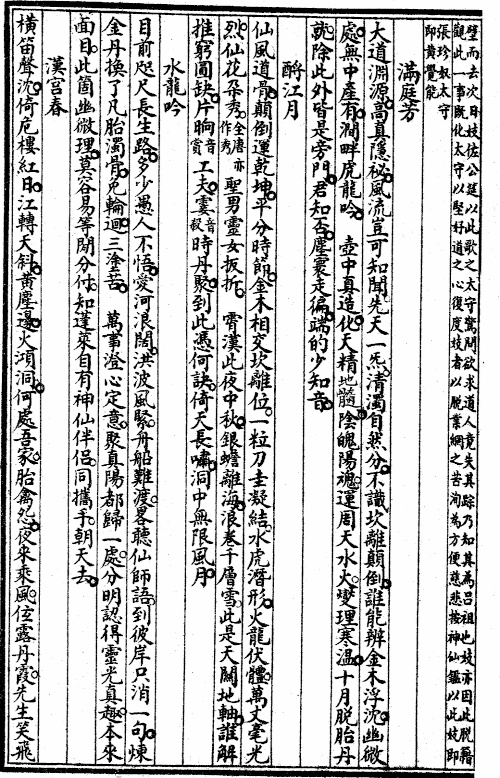 壁而去次日妓佐公筵以此歌之太守驚問欲求道人竟失其踪乃知其為呂祖也妓亦因此脫籍
觀此一事既化太守以堅好道之心復度妓者以脫業網之苦洵為方便慈悲按神仙鑑以此妓即
張珍奴太守
即黄覺能
滿庭芳
大道淵源高真隱祕風流豈可知聞先天一炁清濁自然分不識坎離顛倒誰能辨金木浮沈幽微
處無中產有澗畔虎龍吟　壺中真造化天精地髓陰魄陽魂運周天水火燮理寒温十月脫胎丹
就除此外皆是旁門君知否塵寰走徧端的少知音
酹江月
仙風道骨顛倒運乾坤平分時節金木相交坎離位一粒刀圭凝結水虎潛形火龍伏體萬丈毫光
烈仙花朶秀全唐亦作秀聖男靈女扳折　霄漢此夜中秋銀蟾離海浪卷千層雪此是天關地軸誰解
推窮圓缺片晌音賞工夫霎音報時丹聚到此憑何訣倚天長嘯洞中無限風月
水龍吟
目前咫尺長生路多少愚人不悟愛河浪闊洪波風緊舟船難渡畧聽仙師語到彼岸只消一句煉
金丹換了凡胎濁骨免輪迴三塗苦　萬事澄心定意聚真陽都歸一處分明認得靈光真趣本來
面目此箇幽微理莫容易等閒分付知蓬萊自有神仙伴侶同攜手朝天去
漢宮春
橫笛聲沈倚危樓紅日江轉天斜黄塵邊火澒洞何處吾家胎禽怨夜來乘風伭露丹霞先生笑飛